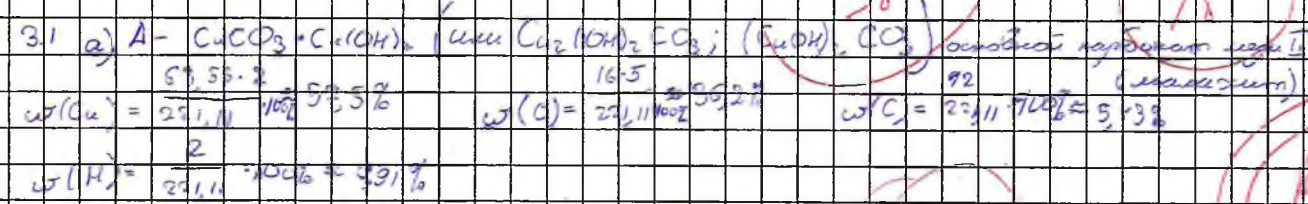 3.1 а) A - CuCO3 · Cu(OH)2 (или Cu2(OH)2CO3; (CuOH)2CO3) основной карбонат меди II (малахит)
ω(Cu) = 63,55·2 / 221,11 ·100% ≈ 57,5% ω(O) = 16·5 / 221,11 ·100% ≈ 36,2% ω(C) = 12 / 221,11 ·100% ≈ 5,43%
ω(H) = 2 / 221,11 ·100% ≈ 0,91%